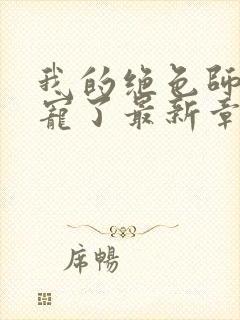 我的绝色师
宠了最新章
席暢